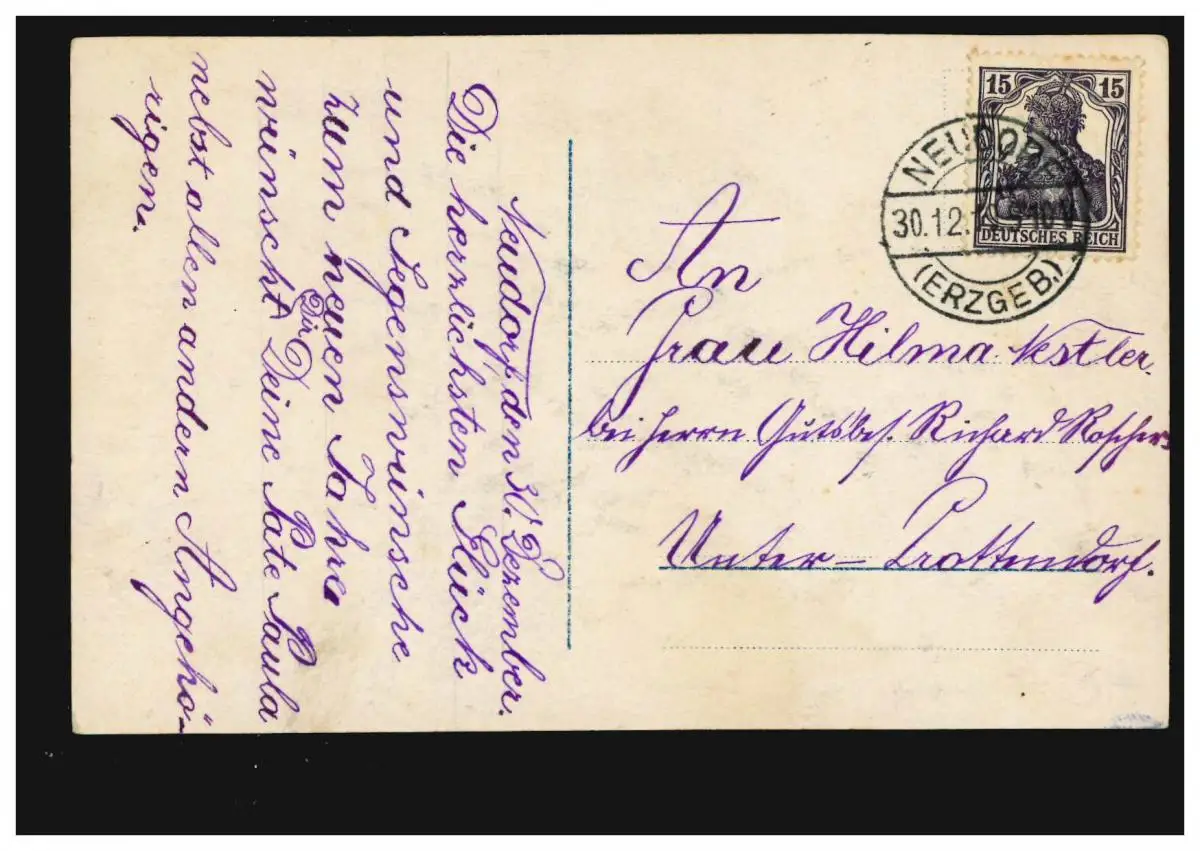 Neudorf, den 30. Dezember.
Die herzlichsten Glück
und Segenswünsche
zum neuen Jahre
wünscht Dir Deine Pate Paula
nebst allen andern Angehö-
rigen.
15 15
DEUTSCHES REICH
NEUDORF
30.12.
(ERZGEB.)
An
Frau Hilma Nestler.
bei Herrn Gutsbes. Richard Roscher
Unter-Crottendorf.